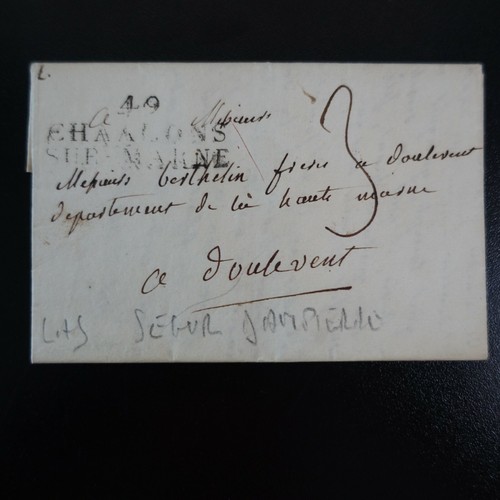 L.
49
CHAALONS
SUR-MARNE
a Messieurs
3
Messieurs berthelin freres a doulevent
departement de la haute marne
a doulevent
LAS SEGUR DAMPIERRE